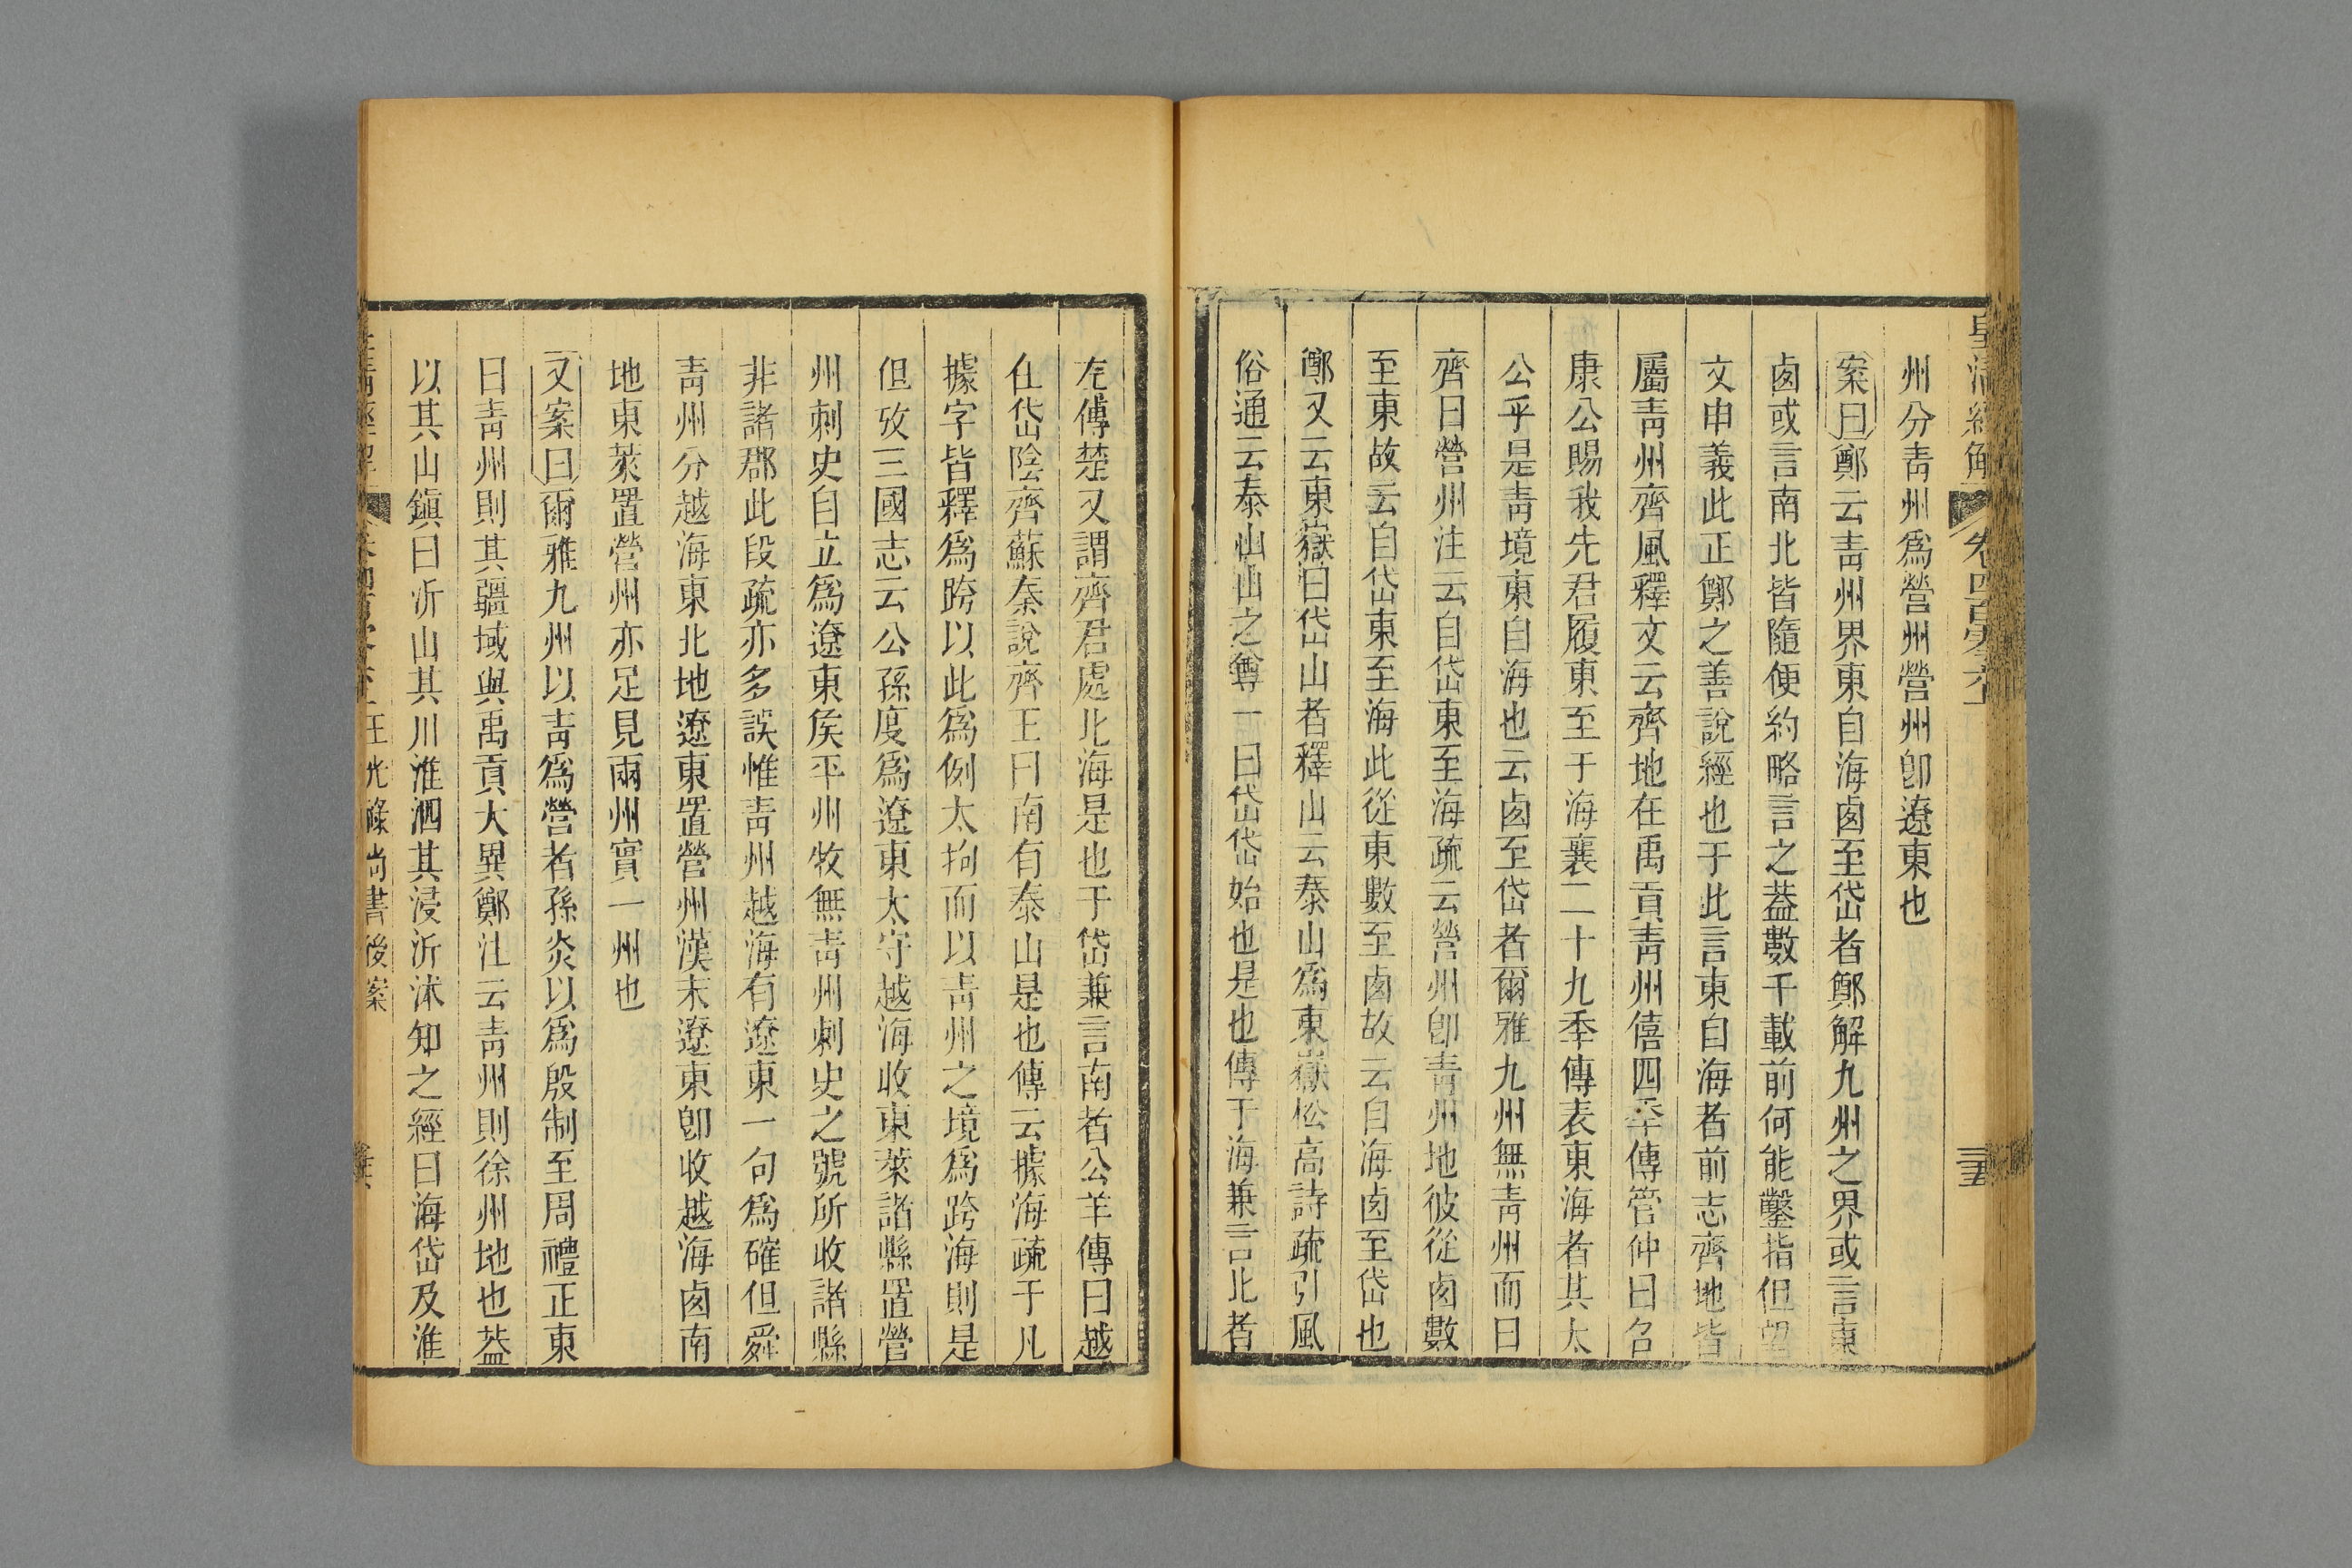 皇清經解 卷四百零六
三五
州分青州爲營州營州卽遼東也
案曰鄭云青州界東自海㢴至岱者鄭解九州之界或言東
㢴或言南北皆隨便約略言之葢數千載前何能鑿指但望
文申義此正鄭之善說經也于此言東自海者前志齊地皆
屬青州齊風釋文云齊地在禹貢青州僖四秊傳管仲曰召
康公賜我先君履東至于海襄二十九秊傳表東海者其太
公乎是青境東自海也云㢴至岱者爾雅九州無青州而曰
齊曰營州注云自岱東至海疏云營州卽青州地彼從㢴數
至東故云自岱東至海此從東數至㢴故云自海㢴至岱也
鄭又云東嶽曰岱山者釋山云泰山爲東嶽松高詩疏引風
俗通云泰山山之尊一曰岱岱始也是也傳于海兼言北者
左傳楚又謂齊君處北海是也于岱兼言南者公羊傳曰越
在岱陰齊蘇秦說齊王曰南有泰山是也傳云據海疏于凡
據字皆釋爲跨以此爲例太拘而以青州之境爲跨海則是
但攷三國志云公孫度爲遼東太守越海收東萊諸縣置營
州刺史自立爲遼東矦平州牧無青州刺史之號所收諸縣
非諸郡此段疏亦多誤惟青州越海有遼東一句爲確但舜
青州分越海東北地遼東置營州漢末遼東卽收越海㢴南
地東萊置營州亦足見兩州實一州也
又案曰爾雅九州以青爲營者孫炎以爲殷制至周禮正東
曰青州則其疆域與禹貢大異鄭注云青州則徐州地也葢
以其山鎭曰沂山其川淮泗其浸沂沭知之經曰海岱及淮
皇清經解 王光祿尚書後案